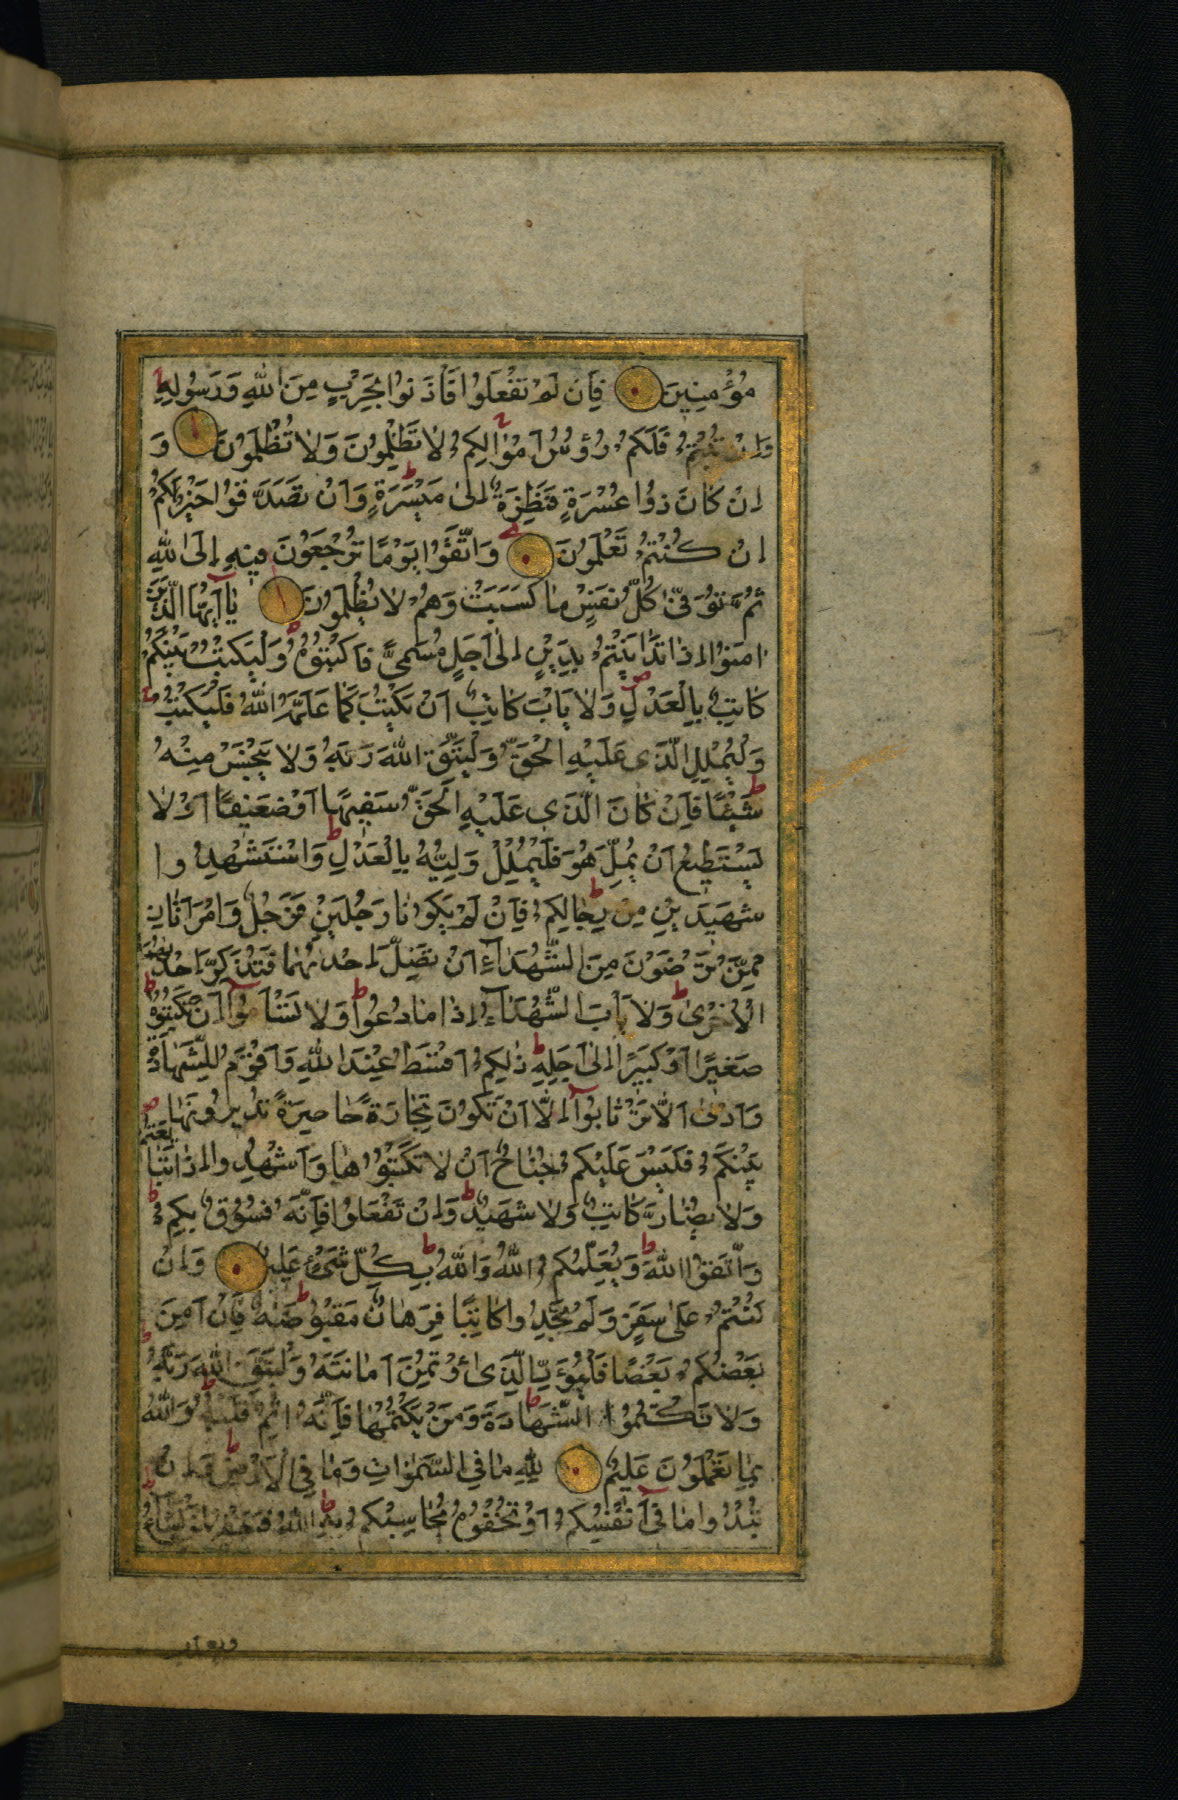 مُؤْمِنِينَ فَاِنْ لَمْ تَفْعَلُوا فَأْذَنُوا بِحَرْبٍ مِنَ اللّٰهِ وَرَسُولِهِ
وَاِنْ تُبْتُمْ فَلَكُمْ رُؤُسُ اَمْوَالِكُمْ لَا تَظْلِمُونَ وَلَا تُظْلَمُونَ وَ
اِنْ كَانَ ذُوا عُسْرَةٍ فَنَظِرَةٌ اِلٰى مَيْسَرَةٍ وَاَنْ تَصَدَّقُوا خَيْرٌ لَكُمْ
اِنْ كُنْتُمْ تَعْلَمُونَ وَاتَّقُوا يَوْمًا تُرْجَعُونَ فِيهِ اِلَى اللّٰهِ
ثُمَّ تُوَفّٰى كُلُّ نَفْسٍ مَا كَسَبَتْ وَهُمْ لَا يُظْلَمُونَ يَا اَيُّهَا الَّذِينَ
اٰمَنُوا اِذَا تَدَايَنْتُمْ بِدَيْنٍ اِلٰى اَجَلٍ مُسَمًّى فَاكْتُبُوهُ وَلْيَكْتُبْ بَيْنَكُمْ
كَاتِبٌ بِالْعَدْلِ وَلَا يَأْبَ كَاتِبٌ اَنْ يَكْتُبَ كَمَا عَلَّمَهُ اللّٰهُ فَلْيَكْتُبْ
وَلْيُمْلِلِ الَّذِي عَلَيْهِ الْحَقُّ وَلْيَتَّقِ اللّٰهَ رَبَّهُ وَلَا يَبْخَسْ مِنْهُ
شَيْئًا فَاِنْ كَانَ الَّذِي عَلَيْهِ الْحَقُّ سَفِيهًا اَوْ ضَعِيفًا اَوْ لَا
يَسْتَطِيعُ اَنْ يُمِلَّ هُوَ فَلْيُمْلِلْ وَلِيُّهُ بِالْعَدْلِ وَاسْتَشْهِدُوا
شَهِيدَيْنِ مِنْ رِجَالِكُمْ فَاِنْ لَمْ يَكُونَا رَجُلَيْنِ فَرَجُلٌ وَامْرَاَتَانِ
مِمَّنْ تَرْضَوْنَ مِنَ الشُّهَدَاءِ اَنْ تَضِلَّ اِحْدٰيهُمَا فَتُذَكِّرَ اِحْدٰيهُمَا
الْاُخْرٰى وَلَا يَأْبَ الشُّهَدَاءُ اِذَا مَا دُعُوا وَلَا تَسْأَمُوا اَنْ تَكْتُبُوهُ
صَغِيرًا اَوْ كَبِيرًا اِلٰى اَجَلِهِ ذٰلِكُمْ اَقْسَطُ عِنْدَ اللّٰهِ وَاَقْوَمُ لِلشَّهَادَةِ
وَاَدْنٰى اَلَّا تَرْتَابُوا اِلَّا اَنْ تَكُونَ تِجَارَةً حَاضِرَةً تُدِيرُونَهَا
بَيْنَكُمْ فَلَيْسَ عَلَيْكُمْ جُنَاحٌ اَنْ لَا تَكْتُبُوهَا وَاَشْهِدُوا اِذَا تَبَايَعْتُمْ
وَلَا يُضَارَّ كَاتِبٌ وَلَا شَهِيدٌ وَاِنْ تَفْعَلُوا فَاِنَّهُ فُسُوقٌ بِكُمْ
وَاتَّقُوا اللّٰهَ وَيُعَلِّمُكُمُ اللّٰهُ وَاللّٰهُ بِكُلِّ شَيْءٍ عَلِيمٌ وَاِنْ
كُنْتُمْ عَلٰى سَفَرٍ وَلَمْ تَجِدُوا كَاتِبًا فَرِهَانٌ مَقْبُوضَةٌ فَاِنْ اَمِنَ
بَعْضُكُمْ بَعْضًا فَلْيُؤَدِّ الَّذِي اؤْتُمِنَ اَمَانَتَهُ وَلْيَتَّقِ اللّٰهَ رَبَّهُ
وَلَا تَكْتُمُوا الشَّهَادَةَ وَمَنْ يَكْتُمْهَا فَاِنَّهُ اٰثِمٌ قَلْبُهُ وَاللّٰهُ
بِمَا تَعْمَلُونَ عَلِيمٌ لِلّٰهِ مَا فِي السَّمٰوَاتِ وَمَا فِي الْاَرْضِ وَاِنْ
تُبْدُوا مَا فِي اَنْفُسِكُمْ اَوْ تُخْفُوهُ يُحَاسِبْكُمْ بِهِ اللّٰهُ فَيَغْفِرُ لِمَنْ يَشَاءُ